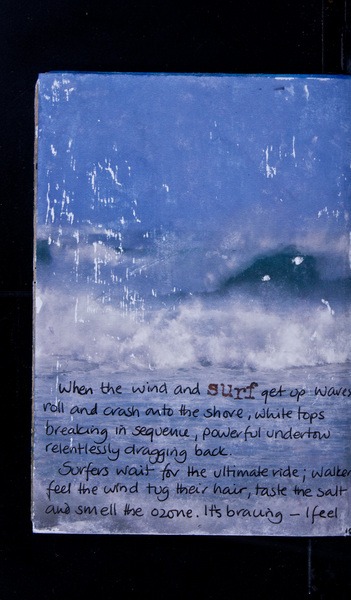 When the wind and surf get up waves
roll and crash onto the shore, white tops
breaking in sequence, powerful undertow
relentlessly dragging back.
Surfers wait for the ultimate ride; walker
feel the wind tug their hair, taste the salt
and smell the ozone. It's bracing – I feel